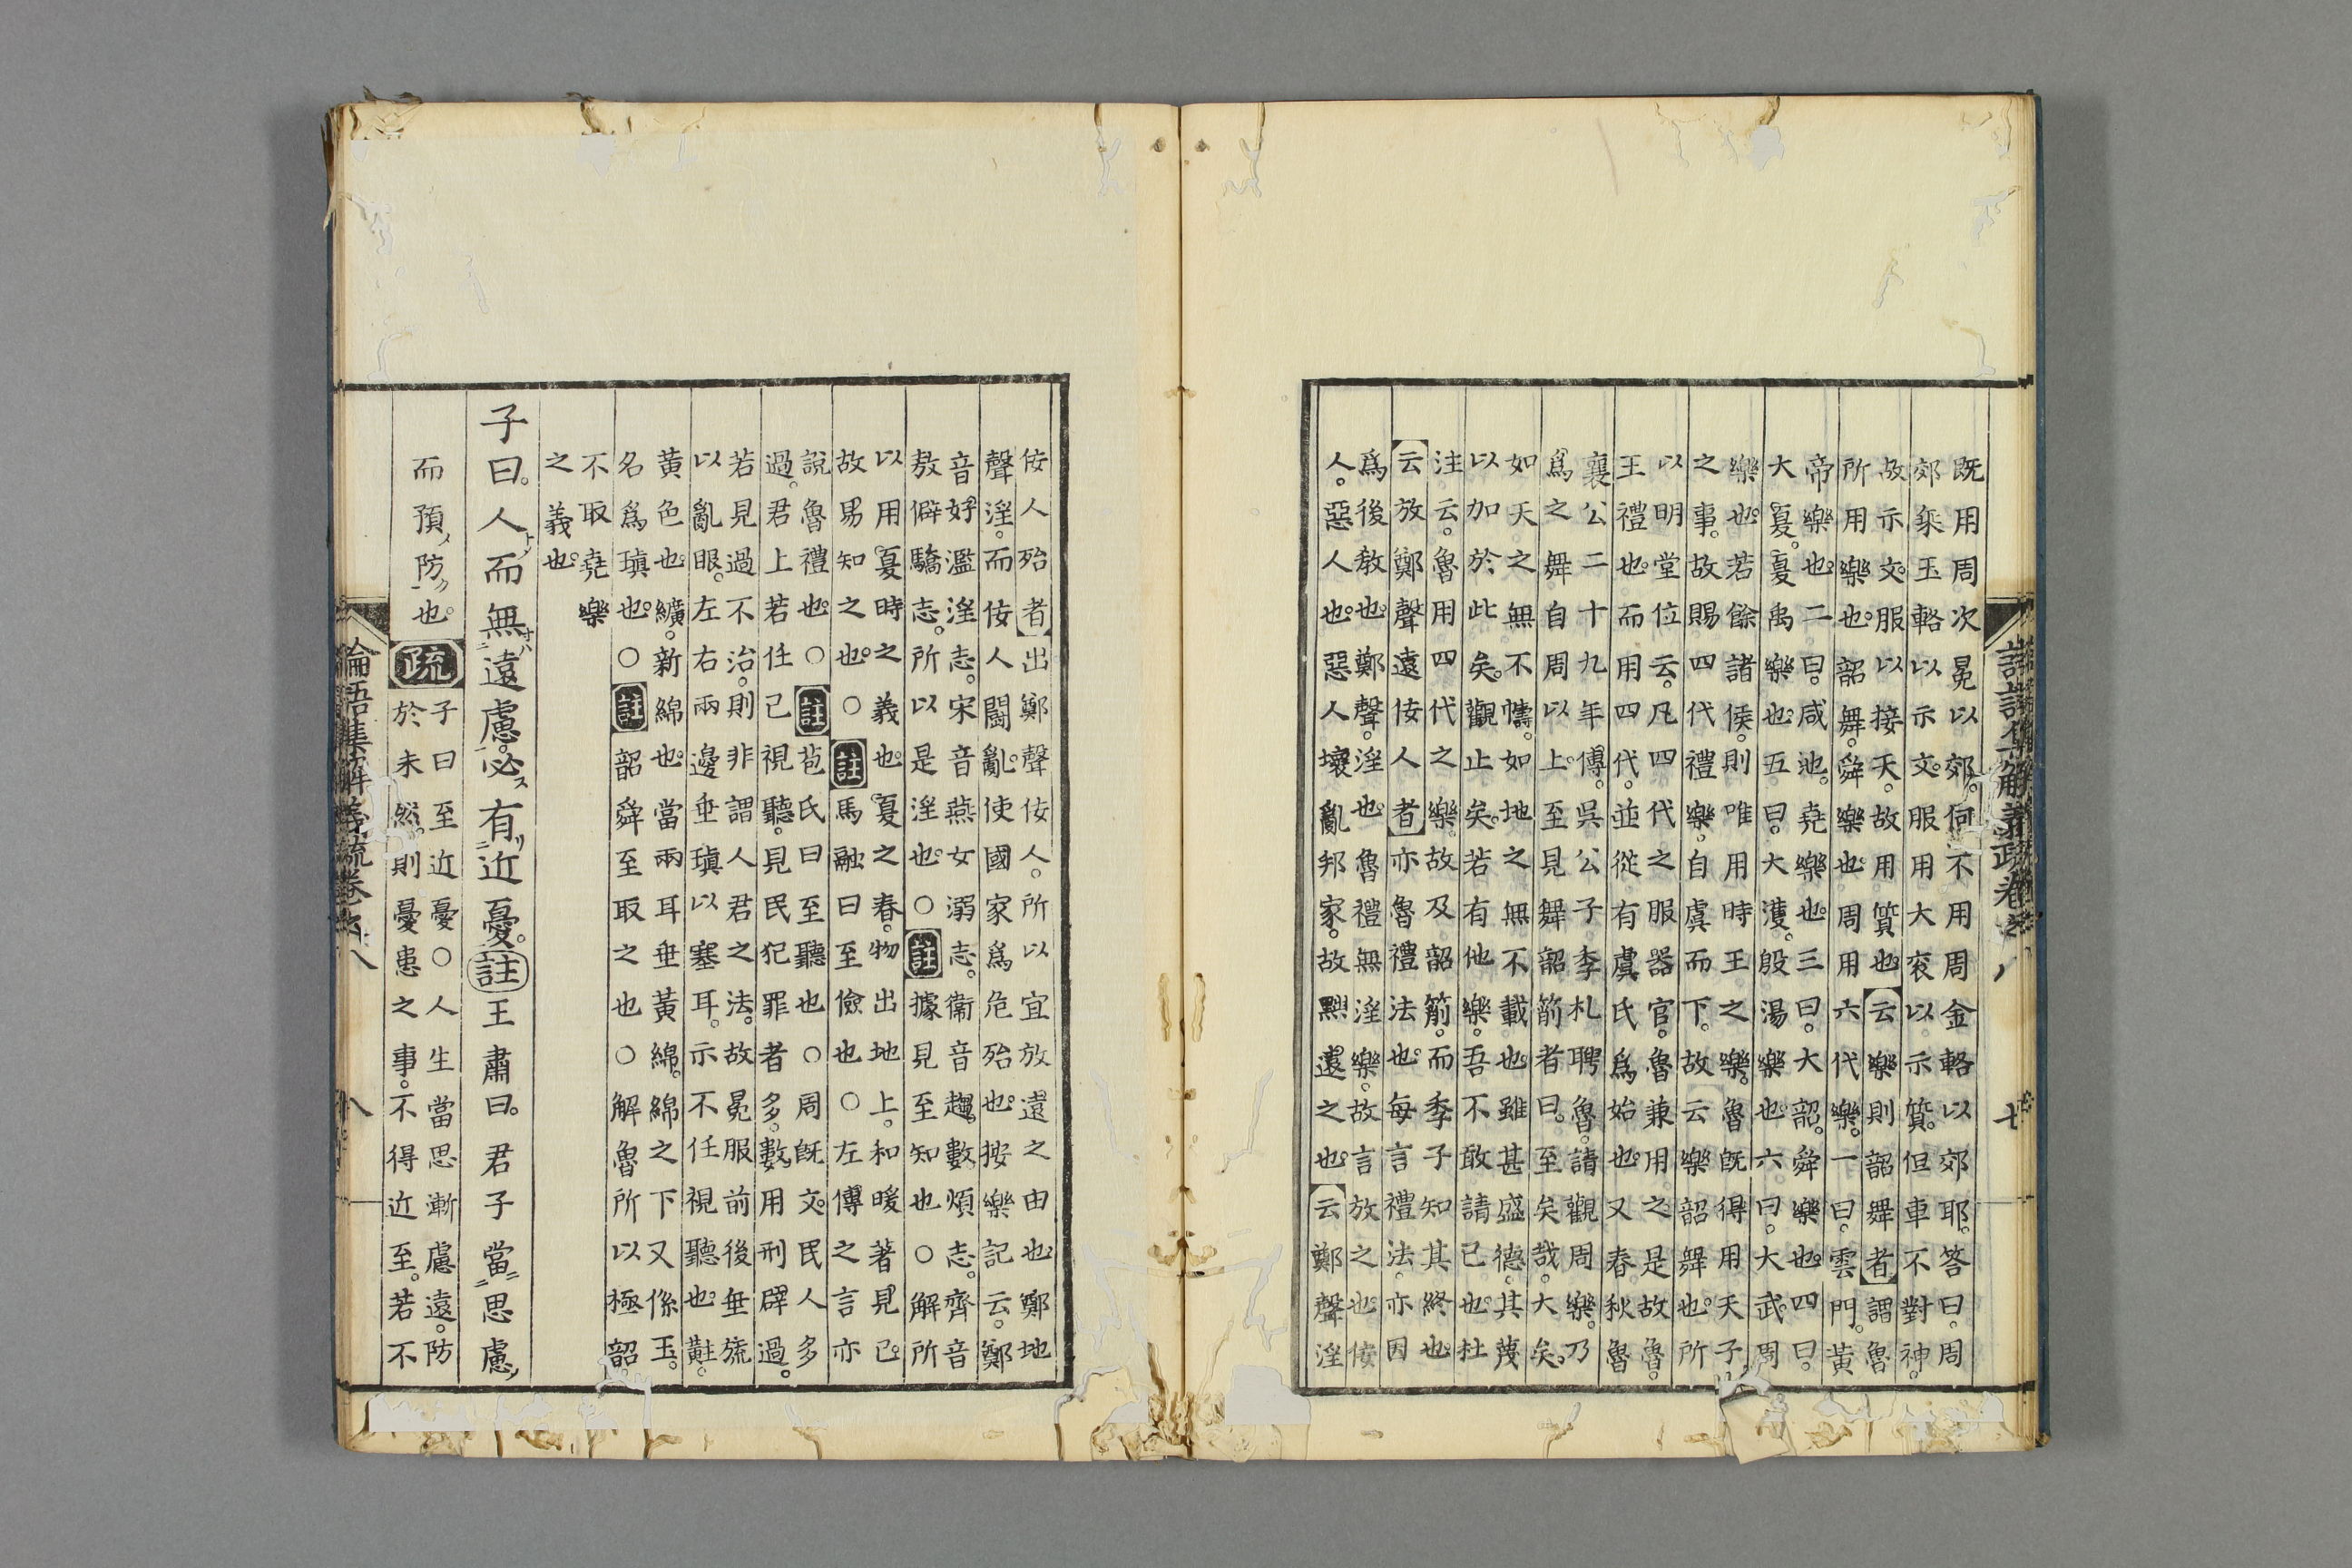 既用周次冕以郊。何不用周金輅以郊耶。答曰。周
郊乘玉輅以示文。服用大裘以示質。但車不對神。
故示文。服以接天。故用質也【云樂則韶舞者】謂魯
所用樂也。韶舞。舜樂也。周用六代樂。一曰。雲門。黃
帝樂也。二曰。咸池。堯樂也。三曰。大韶。舜樂也。四曰。
大夏。夏禹樂也。五曰。大濩。殷湯樂也。六曰。大武。周
樂也。若餘諸侯。則唯用時王之樂。魯既得用天子
之事。故賜四代禮樂。自虞而下。故云樂韶舞也。所
以明堂位云。凡四代之服器官。魯兼用之。是故魯。
王禮也。而用四代。並從有虞氏爲始也。又春秋魯
襄公二十九年傳。吳公子季札聘魯。請觀周樂。乃
爲之舞自周以上。至見舞韶箾者曰。至矣哉。大矣。
如天之無不幬。如地之無不載也。雖甚盛德。其蔑
以加於此矣。觀止矣。若有他樂。吾不敢請已也。杜
注云。魯用四代之樂。故及韶箾。而季子知其終也。
【云放鄭聲遠佞人者】亦魯禮法也。每言禮法。亦因
爲後教也。鄭聲。淫也。魯禮無淫樂。故言放之也。佞
人。惡人也。惡人壞亂邦家。故黜遠之也。【云鄭聲淫
佞人殆者】出鄭聲佞人。所以宜放遠之由也。鄭地
聲淫。而佞人鬪亂。使國家爲危殆也。按樂記云。鄭
音好濫淫志。宋音燕女溺志。衞音趨數煩志。齊音
敖僻驕志。所以是淫也。○註據見至知也○解所
以用夏時之義也。夏之春。物出地上。和暖著見已。
故易知之也。○註馬融曰至儉也○左傳之言亦
說魯禮也。○註苞氏曰至聽也○周既文。民人多
過。君上若任己視聽。見民犯罪者多。數用刑辟過。
若見過不治。則非謂人君之法。故冕服前後垂旒
以亂眼。左右兩邊垂瑱以塞耳。示不任視聽也。黈。
黃色也。纊。新綿也。當兩耳垂黃綿。綿之下又係玉。
名爲瑱也。○註韶舜至取之也○解魯所以極韶。
不取堯樂
之義也。
子曰。人而無遠慮。必有近憂。註王肅曰。君子當思慮
而預防也。疏子曰至近憂○人生當思漸慮遠。防
於未然。則憂患之事。不得近至。若不
論語集解義疏卷八
八